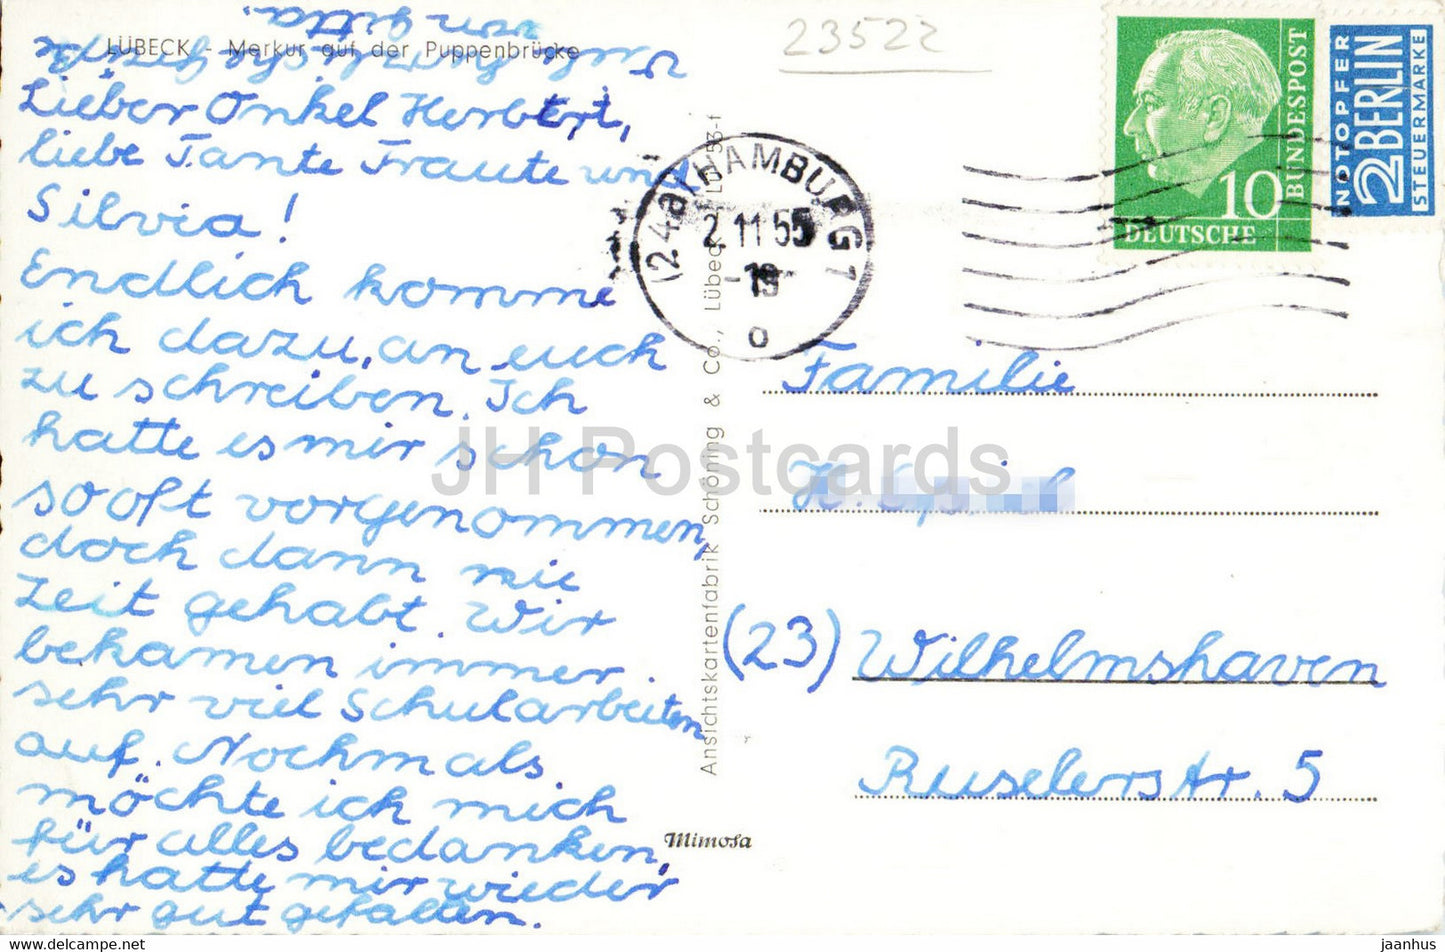 LÜBECK - Merkur auf der Puppenbrücke
Lieber Onkel Herbert,
liebe Tante Traute und
Silvia!
Endlich komme
ich dazu, an euch
zu schreiben. Ich
hatte es mir schon
so oft vorgenommen,
doch dann nie
Zeit gehabt. Wir
bekamen immer
sehr viel Schularbeiten
auf. Nochmals
möchte ich mich
für alles bedanken,
es hatte mir wieder
sehr gut gefallen.
von Gitta.
Ansichtskartenfabrik Schöning & Co., Lübeck
Mimosa
23522
(24a) HAMBURG 1
2.11.55
o
10
DEUTSCHE
BUNDESPOST
NOTOPFER
2 BERLIN
STEUERMARKE
Familie
H.
(23) Wilhelmshaven
Ruselerstr. 5
JH Postcards
Delcampe.net
jaanhus